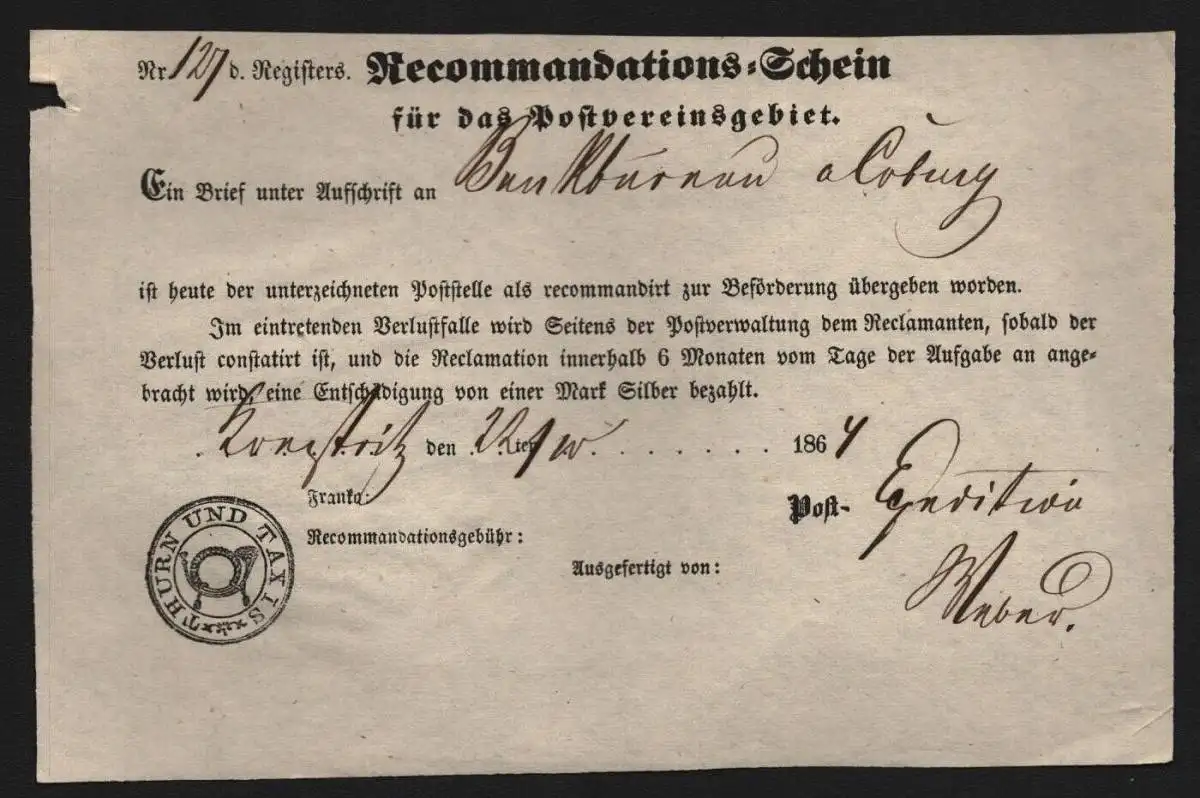 Nr 127 d. Registers. Recommandations-Schein
für das Postvereinsgebiet.
Ein Brief unter Aufschrift an Bankbureau a Coburg
ist heute der unterzeichneten Poststelle als recommandirt zur Beförderung übergeben worden.
Im eintretenden Verlustfalle wird Seitens der Postverwaltung dem Reclamanten, sobald der
Verlust constatirt ist, und die Reclamation innerhalb 6 Monaten vom Tage der Aufgabe an ange-
bracht wird, eine Entschädigung von einer Mark Silber bezahlt.
den 1864
Franko:
Post- Expedition
Recommandationsgebühr:
Ausgefertigt von:
Weber.
THURN UND TAXIS